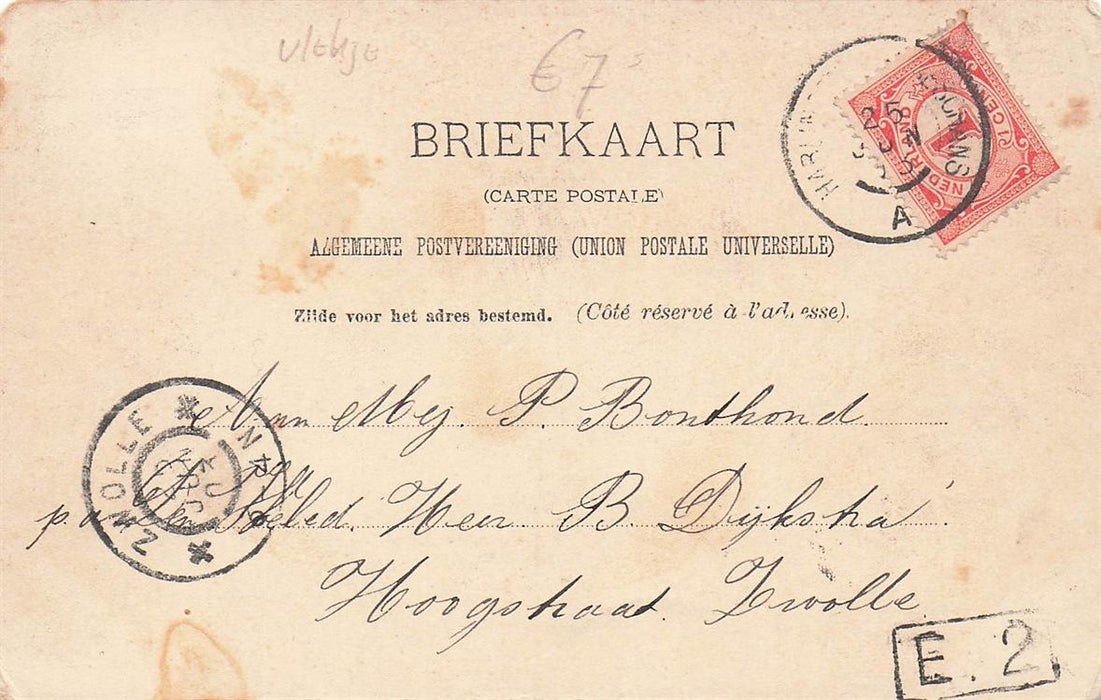 vlekje
€ 7
BRIEFKAART
(CARTE POSTALE)
ALGEMEENE POSTVEREENIGING (UNION POSTALE UNIVERSELLE)
Zijde voor het adres bestemd. (Côté réservé à l'adresse).
1 CENT
25
A
ZWOLLE
Aan Mej. P. Bonthond.
p.a. den Heer B. Dijkstra
Hoogstraat Zwolle
E. 2